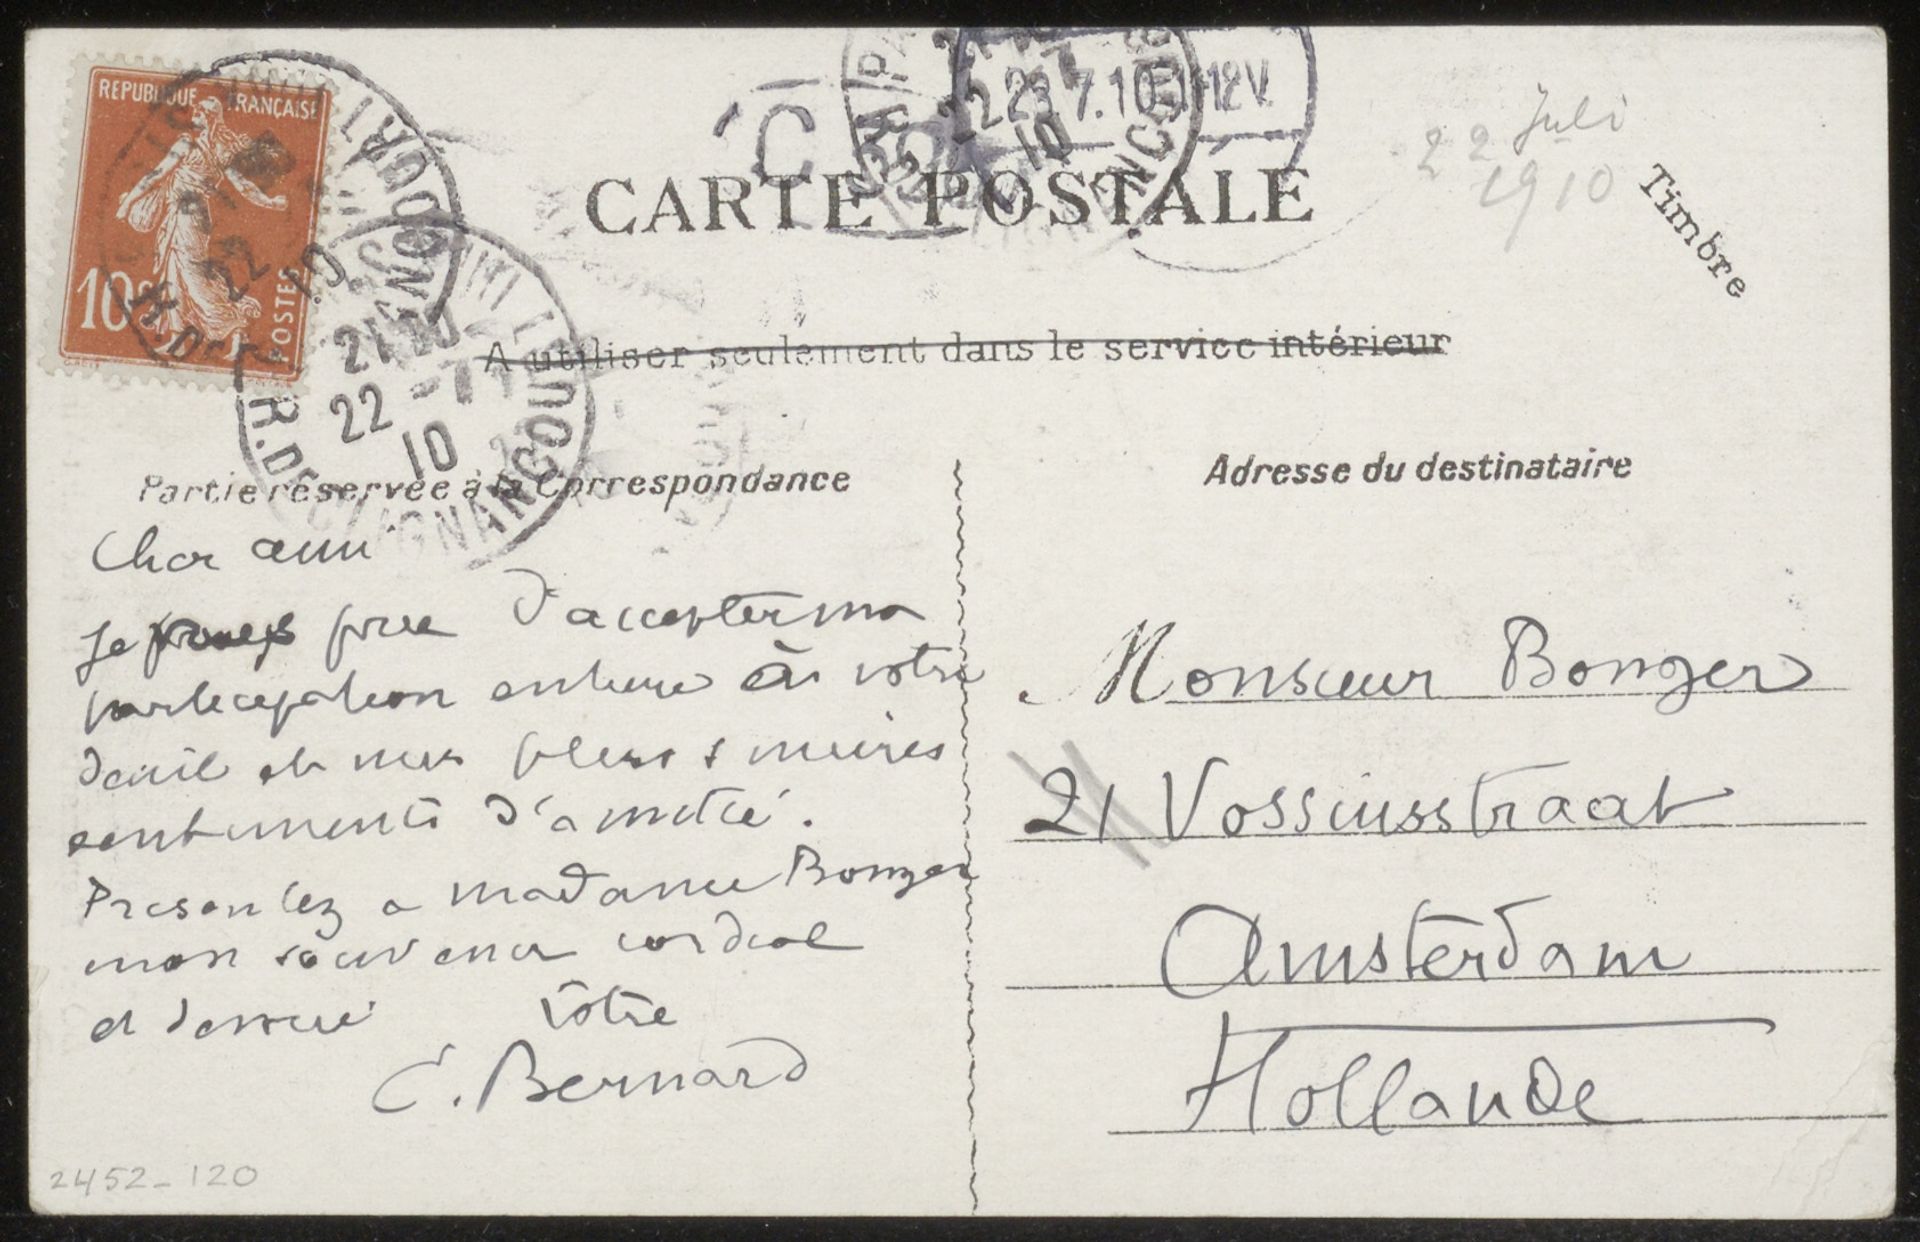 REPUBLIQUE FRANÇAISE
10c
POSTES
21
22 -7
10
R. DE CLIGNANCOURT
23.7.10 11-12V.
CARTE POSTALE
22 Juli
1910
Timbre
A utiliser seulement dans le service intérieur
Partie réservée à la Correspondance
Adresse du destinataire
Cher ami
Je prie d'accepter ma
participation entière à votre
deuil et mes plus sincères
sentiments d'amitié.
Présentez a madame Bonger
mon souvenir cordial
et dévoué Votre
E. Bernard
Monsieur Bonger
21 Vossiusstraat
Amsterdam
Hollande
2452-120